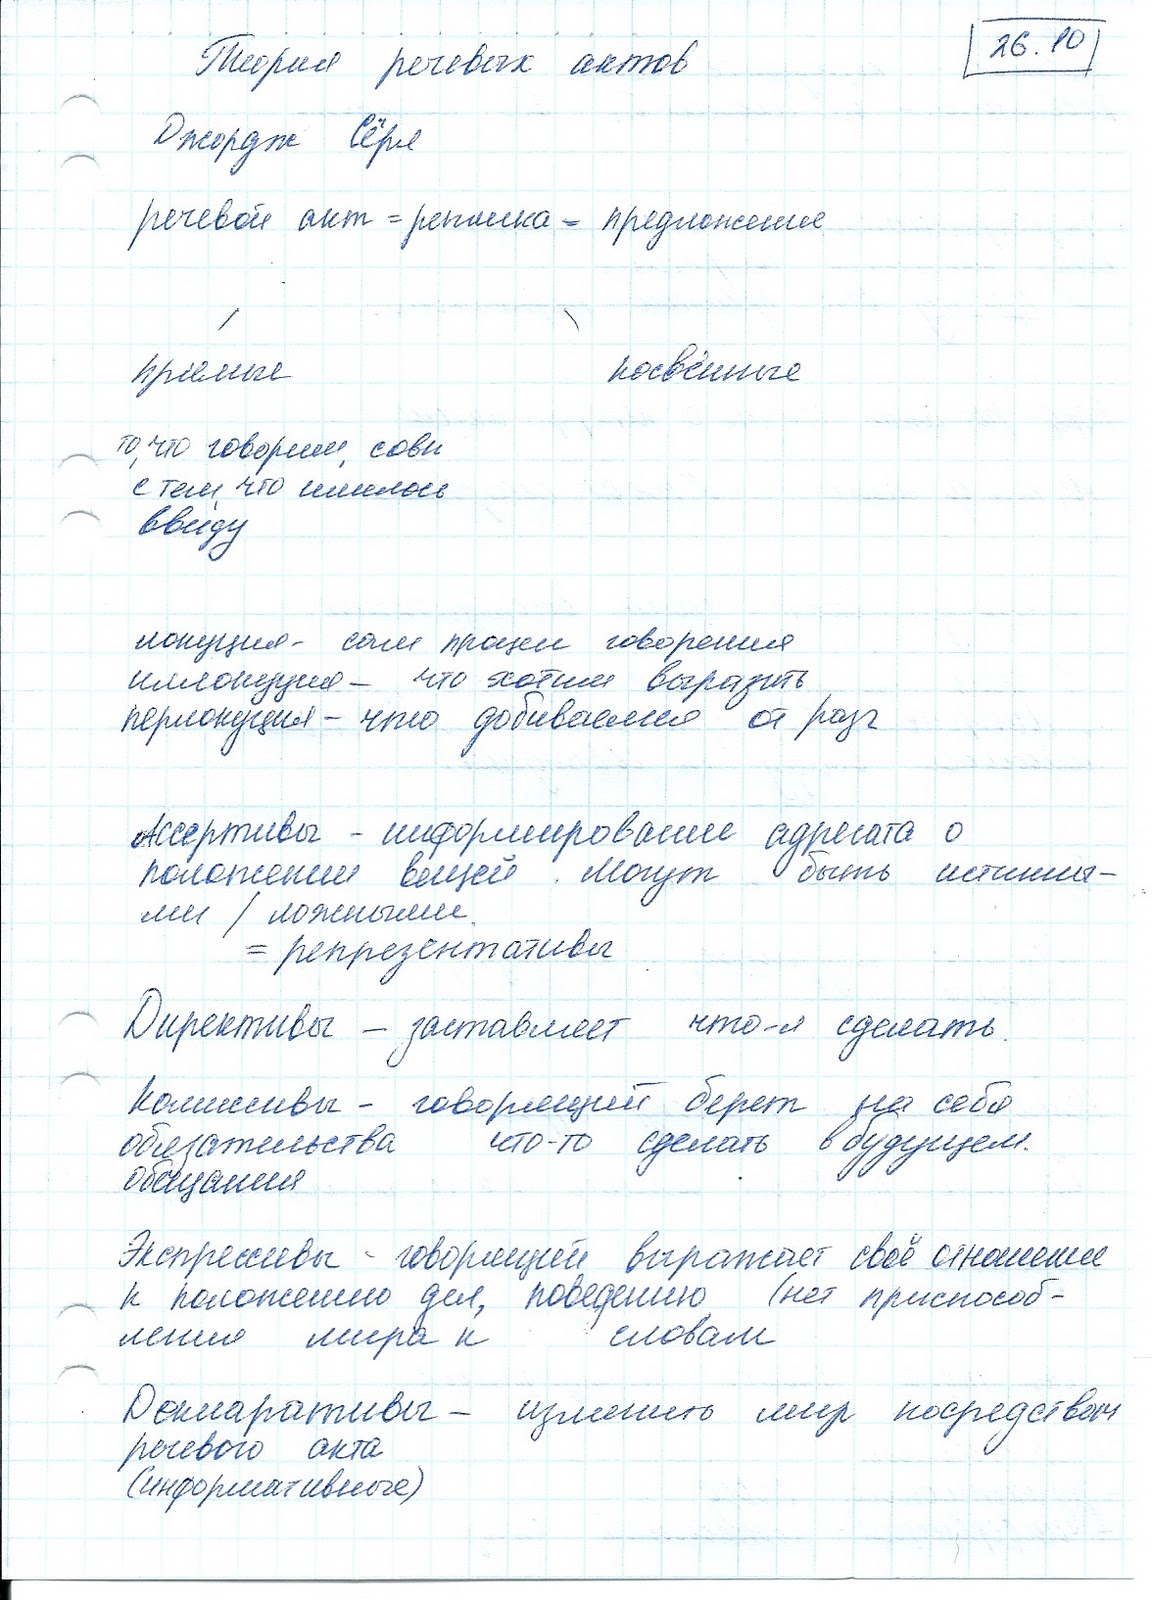 26.10
Теория речевых актов
Джордж Сёрл
речевой акт = реплика = предложение
прямые косвенные
то, что говорим, совп
с тем, что имелось
ввиду
локуция - сам процесс говорения
иллокуция - что хотим выразить
перлокуция - что добиваемся от разг
Ассертивы - информирование адресата о
положении вещей. Могут быть истинны-
ми / ложными.
= репрезентативы
Директивы - заставляет что-л сделать.
Комиссивы - говорящий берет на себя
обязательства что-то сделать в будущем.
Обещания
Экспрессивы - говорящий выражает своё отношение
к положению дел, поведению (нет приспособ-
ления мира к словам
Декларативы - изменить мир посредством
речевого акта
(информативные)